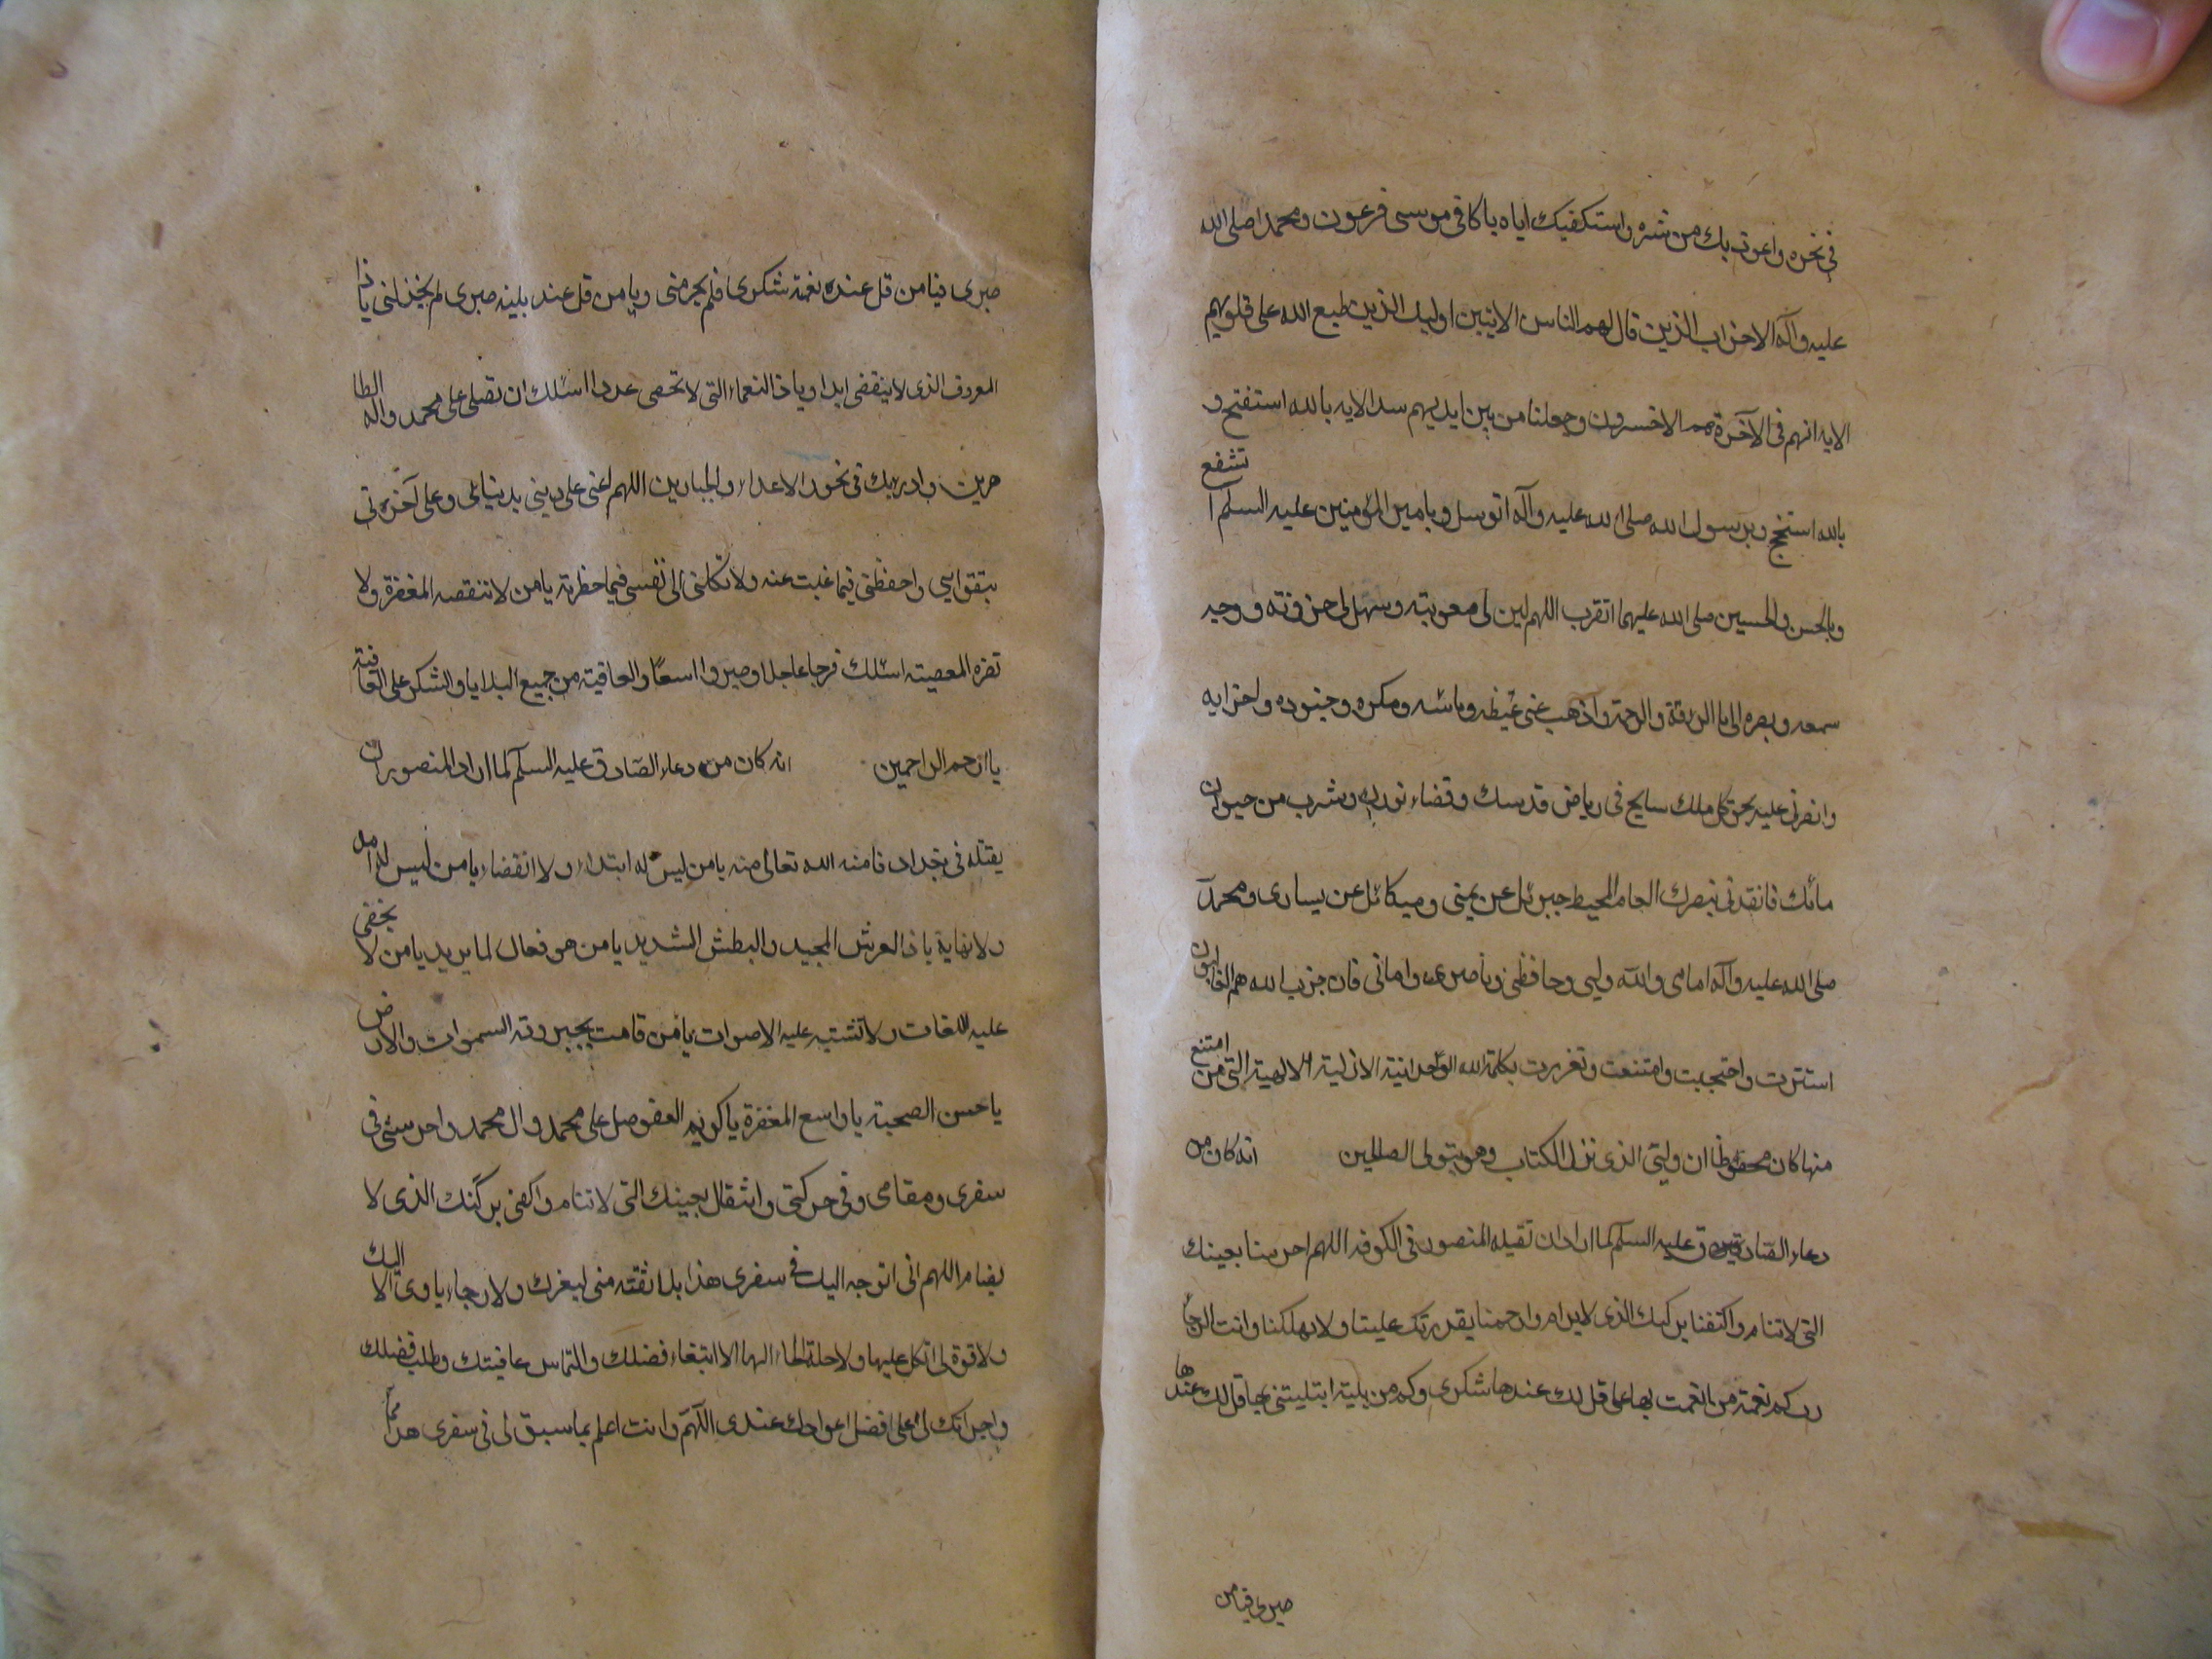 في نحره واعوذ بك من شره واستكفيك اياه يا كافي موسى فرعون ومحمدا صلى الله
عليه وآله الاحزاب الذين قال لهم الناس الايتين اوليك الذين طبع الله على قلوبهم
الايه انهم في الآخرة هم الاخسرون وجعلنا من بين ايديهم سدا الايه بالله استفتح و
بالله استنجح وبرسول الله صلى الله عليه وآله اتوسل وبامير المؤمنين عليه السلم اتشفع
وبالحسن والحسين صلى الله عليهما اتقرب اللهم لين لي صعوبته وسهل لي حزونته ووجه
سمعه وبصره الى بالرافة والرحمة واذهب عني غيظه وباسه ومكره وجنوده واحزابه
وانصرني عليه بحق كل ملك سايح في رياض قدسك وفضاء نورك وشرب من حيوان
مائك فانقذني بنصرك العام المحيط جبرئل عن يميني وميكائل عن يساري ومحمد
صلى الله عليه وآله امامي والله وليي وحافظي وناصري واماني فان حزب الله هم الغالبون
استترت واحتجبت وامتنعت وتعززت بكلمة الله الوحدانية الازلية الالهية التي من امتنع
منها كان محفوظا ان وليي الذي نزل الكتاب وهو يتولى الصالحين انه كان من
دعاء الصادق عليه السلم لما اراد ان تقيله المنصور في الكوفه اللهم احرسنا بعينك
التي لا تنام واكنفنا بركنك الذي لا يرام وارحمنا بقدرتك علينا ولا يهلكنا وانت الرجا
رب كم نعمة من انعمت بها على قل لك عندها شكري وكم من بلية ابتليتني بها قل لك عندها
صبري فيا من
صبري فيا من قل عنده نعمة شكري فلم يحرمني ويا من قل عند بليه صبري لم يخذلني يا ذا
المعروف الذي لا ينقضي ابدا ويا ذا النعماء التي لا تحصى عددا اسئلك ان تصلي على محمد واله الطا
هرين وادرء بك في نحور الاعداء والجبارين اللهم اعني على ديني بدنياي وعلى آخرتي
بتقواي واحفظني فيما غبت عنه ولا تكلني الى نفسي فيما حظرته يا من لا تنقصه المغفرة ولا
تضره المعصيته اسئلك فرجا عاجلا وصبرا واسعا والعافية من جميع البلايا والشكر على العافية
يا ارحم الراحمين انه كان من دعاء الصادق عليه السلم لما اراد المنصور ان
يقتله في بغداد فامنه الله تعالى منه يا من ليس له ابتداء ولا انقضاء يا من ليس له امد
ولا نهاية يا ذا العرش المجيد والبطش الشديد يا من هو فعال لما يريد يا من لا يخفى
عليه اللغات ولا تشتبه عليه الاصوات يا من قامت بجبروته السموات والارض
يا حسن الصحبة يا واسع المغفرة يا كريم العفو صل على محمد وال محمد واحرسني في
سفري ومقامي وفي حركتي وانتقال بعينك التي لا تنام واكنفني بركنك الذي لا
يضام اللهم اني اتوجه اليك في سفري هذا بلا ثقته مني لغيرك ولا رجاء ياوي الا اليك
ولا قوة لي اتكل عليها ولا حيلة الجاء اليها الا ابتغاء فضلك والتماس عافيتك وطلب فضلك
واجرائك لي على افضل عوائدك عندي اللهم وانت اعلم بما سبق لي في سفري هذا مما